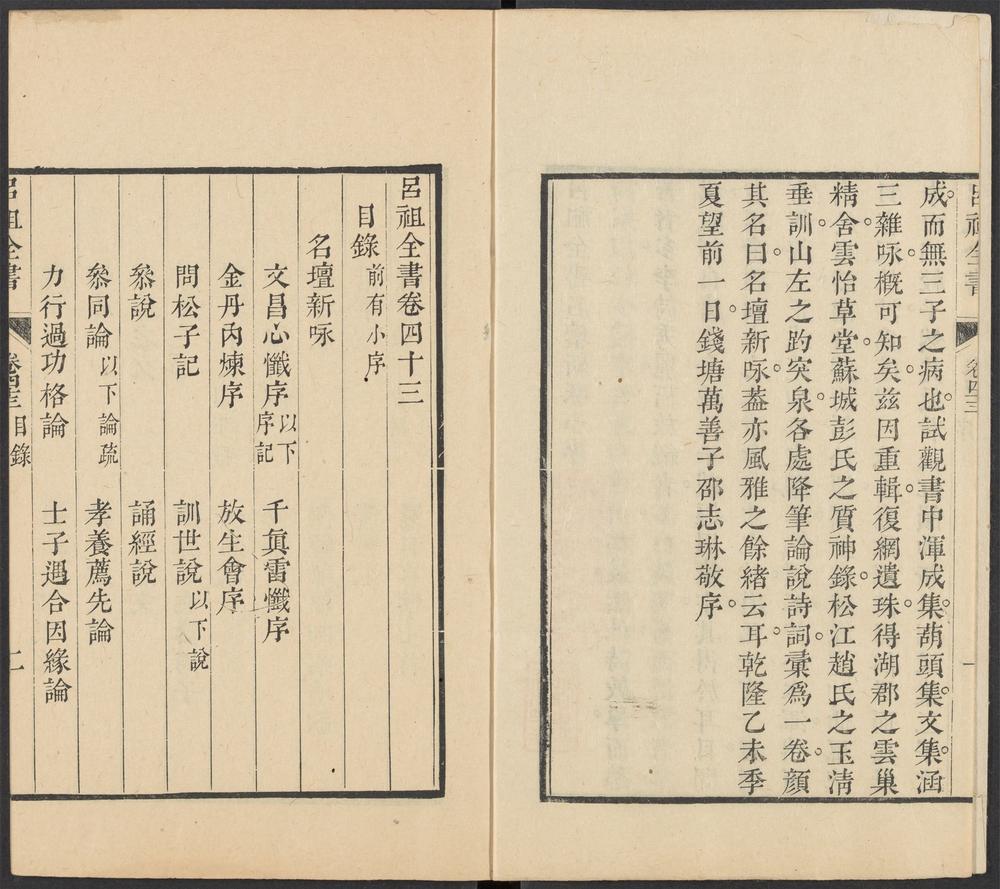 呂祖全書 卷四三 一
成而無三子之病也試觀書中渾成集葫頭集文集涵
三雜咏槪可知矣茲因重輯復網遺珠得湖郡之雲巢
精舍雲怡草堂蘇城彭氏之質神錄松江趙氏之玉淸
垂訓山左之趵突泉各處降筆論說詩詞彙爲一卷顔
其名曰名壇新咏葢亦風雅之餘緒云耳乾隆乙未季
夏望前一日錢塘萬善子邵志琳敬序
呂祖全書卷四十三
目錄 前有小序
名壇新咏
文昌心懺序 以下序記 千眞雷懺序
金丹內煉序 放生會序
問松子記 訓世說 以下說
叅說 誦經說
叅同論 以下論疏 孝養薦先論
力行過功格論 士子遇合因緣論
呂祖全書 卷四三 目錄 二